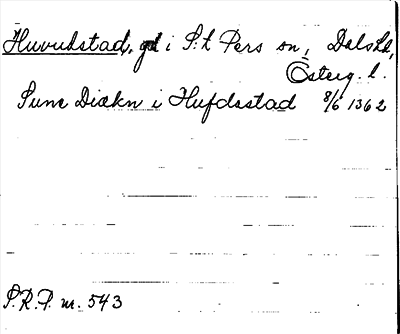 Huvudstad, gd i S:t Pers sn, Dals hd,
Österg. l.
Sune Diækn i Hufdastad 8/6 1362
S.R.P. nr. 543